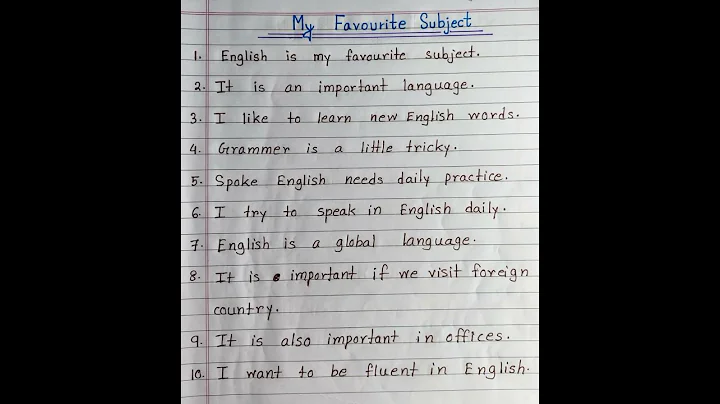 My Favourite Subject
1. English is my favourite subject.
2. It is an important language.
3. I like to learn new English words.
4. Grammer is a little tricky.
5. Spoke English needs daily practice.
6. I try to speak in English daily.
7. English is a global language.
8. It is important if we visit foreign
country.
9. It is also important in offices.
10. I want to be fluent in English.